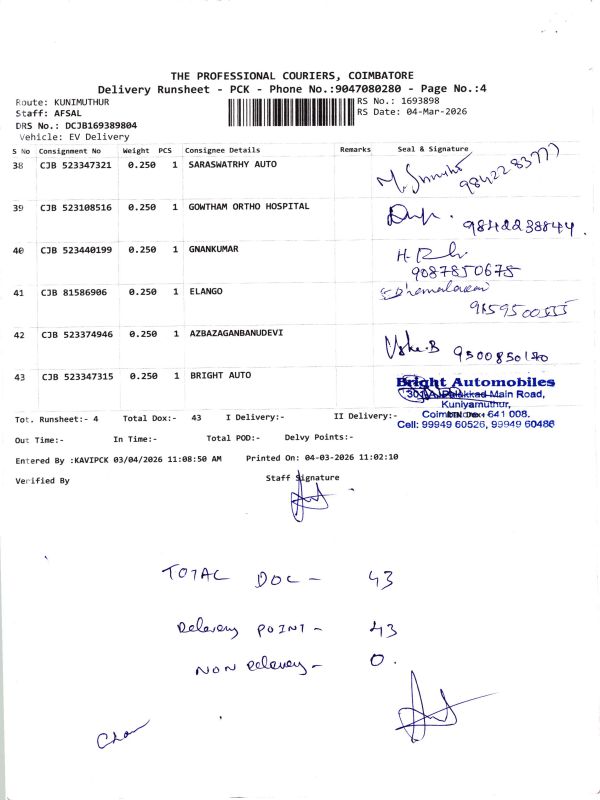 THE PROFESSIONAL COURIERS, COIMBATORE
Delivery Runsheet - PCK - Phone No.:9047080280 - Page No.:4
Route: KUNIMUTHUR
RS No.: 1693898
Staff: AFSAL
RS Date: 04-Mar-2026
DRS No.: DCJB169389804
Vehicle: EV Delivery
S No Consignment No Weight PCS Consignee Details Remarks Seal & Signature
38 CJB 523347321 0.250 1 SARASWATRHY AUTO
9842283777
39 CJB 523108516 0.250 1 GOWTHAM ORTHO HOSPITAL
9842238844.
40 CJB 523440199 0.250 1 GNANKUMAR
9087850675
41 CJB 81586906 0.250 1 ELANGO
42 CJB 523374946 0.250 1 AZBAZAGANBANUDEVI
43 CJB 523347315 0.250 1 BRIGHT AUTO
Bright Automobiles
Palakkad Main Road,
Kuniyamuthur,
641 008.
Cell: 99949 60526, 99949 60486
Tot. Runsheet:- 4 Total Dox:- 43 I Delivery:- II Delivery:-
Out Time:- In Time:- Total POD:- Delvy Points:-
Entered By :KAVIPCK 03/04/2026 11:08:50 AM Printed On: 04-03-2026 11:02:10
Verified By Staff Signature
TOTAL DOC - 43
Delevery POINT - 43
NON Delevery - 0.